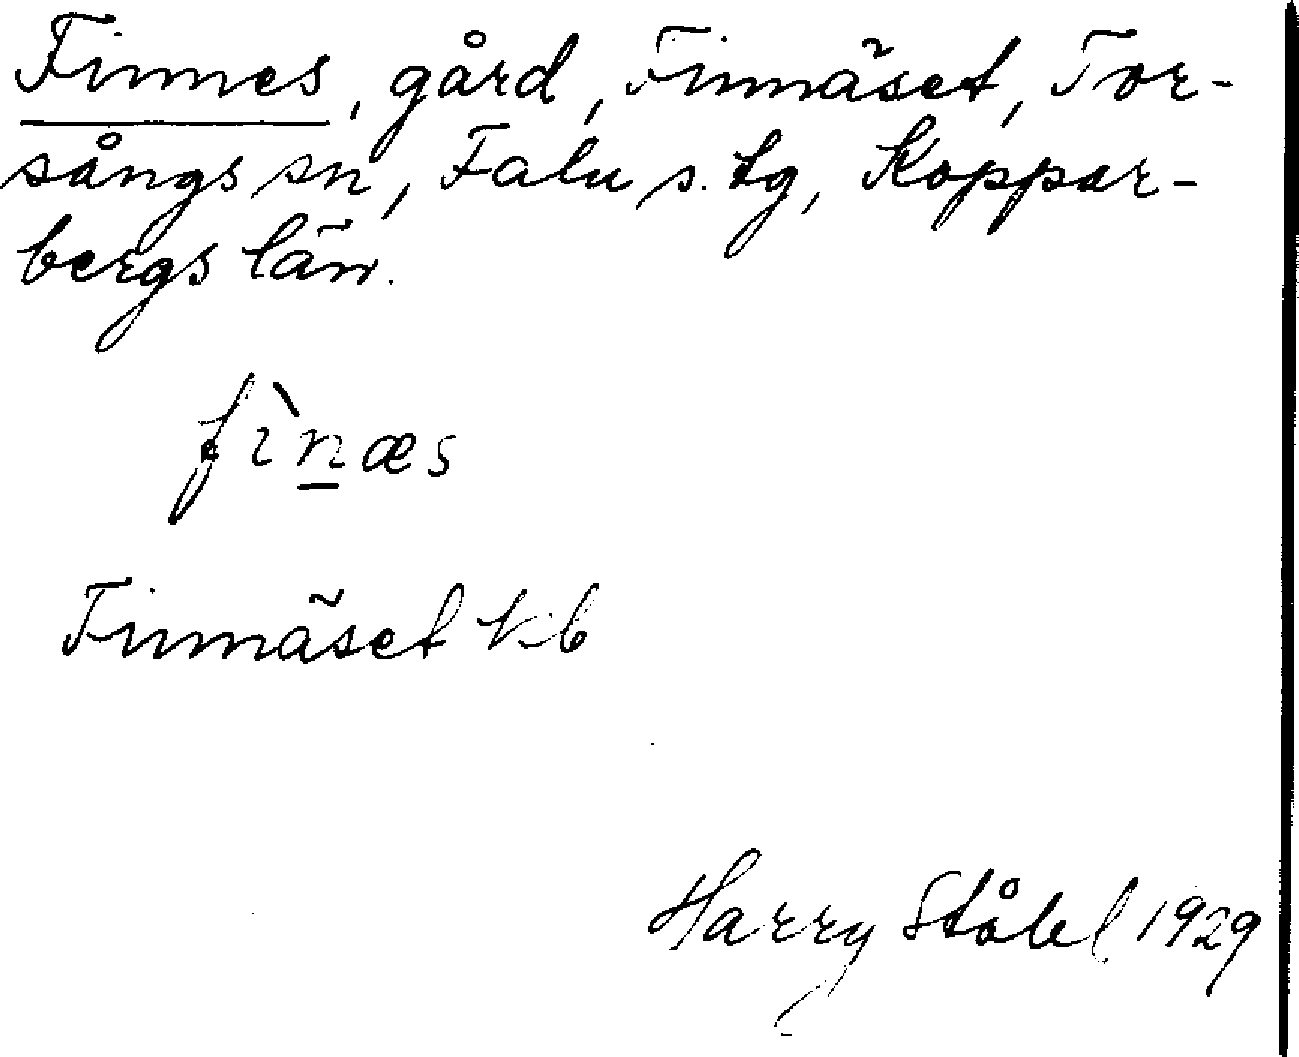 Finnes, gård, Finnäset, Tor-
sångs sn, Falu s. tg, Koppar-
bergs län.
fìn̲æs
Finnäset kb
Harry Ståhl 1929